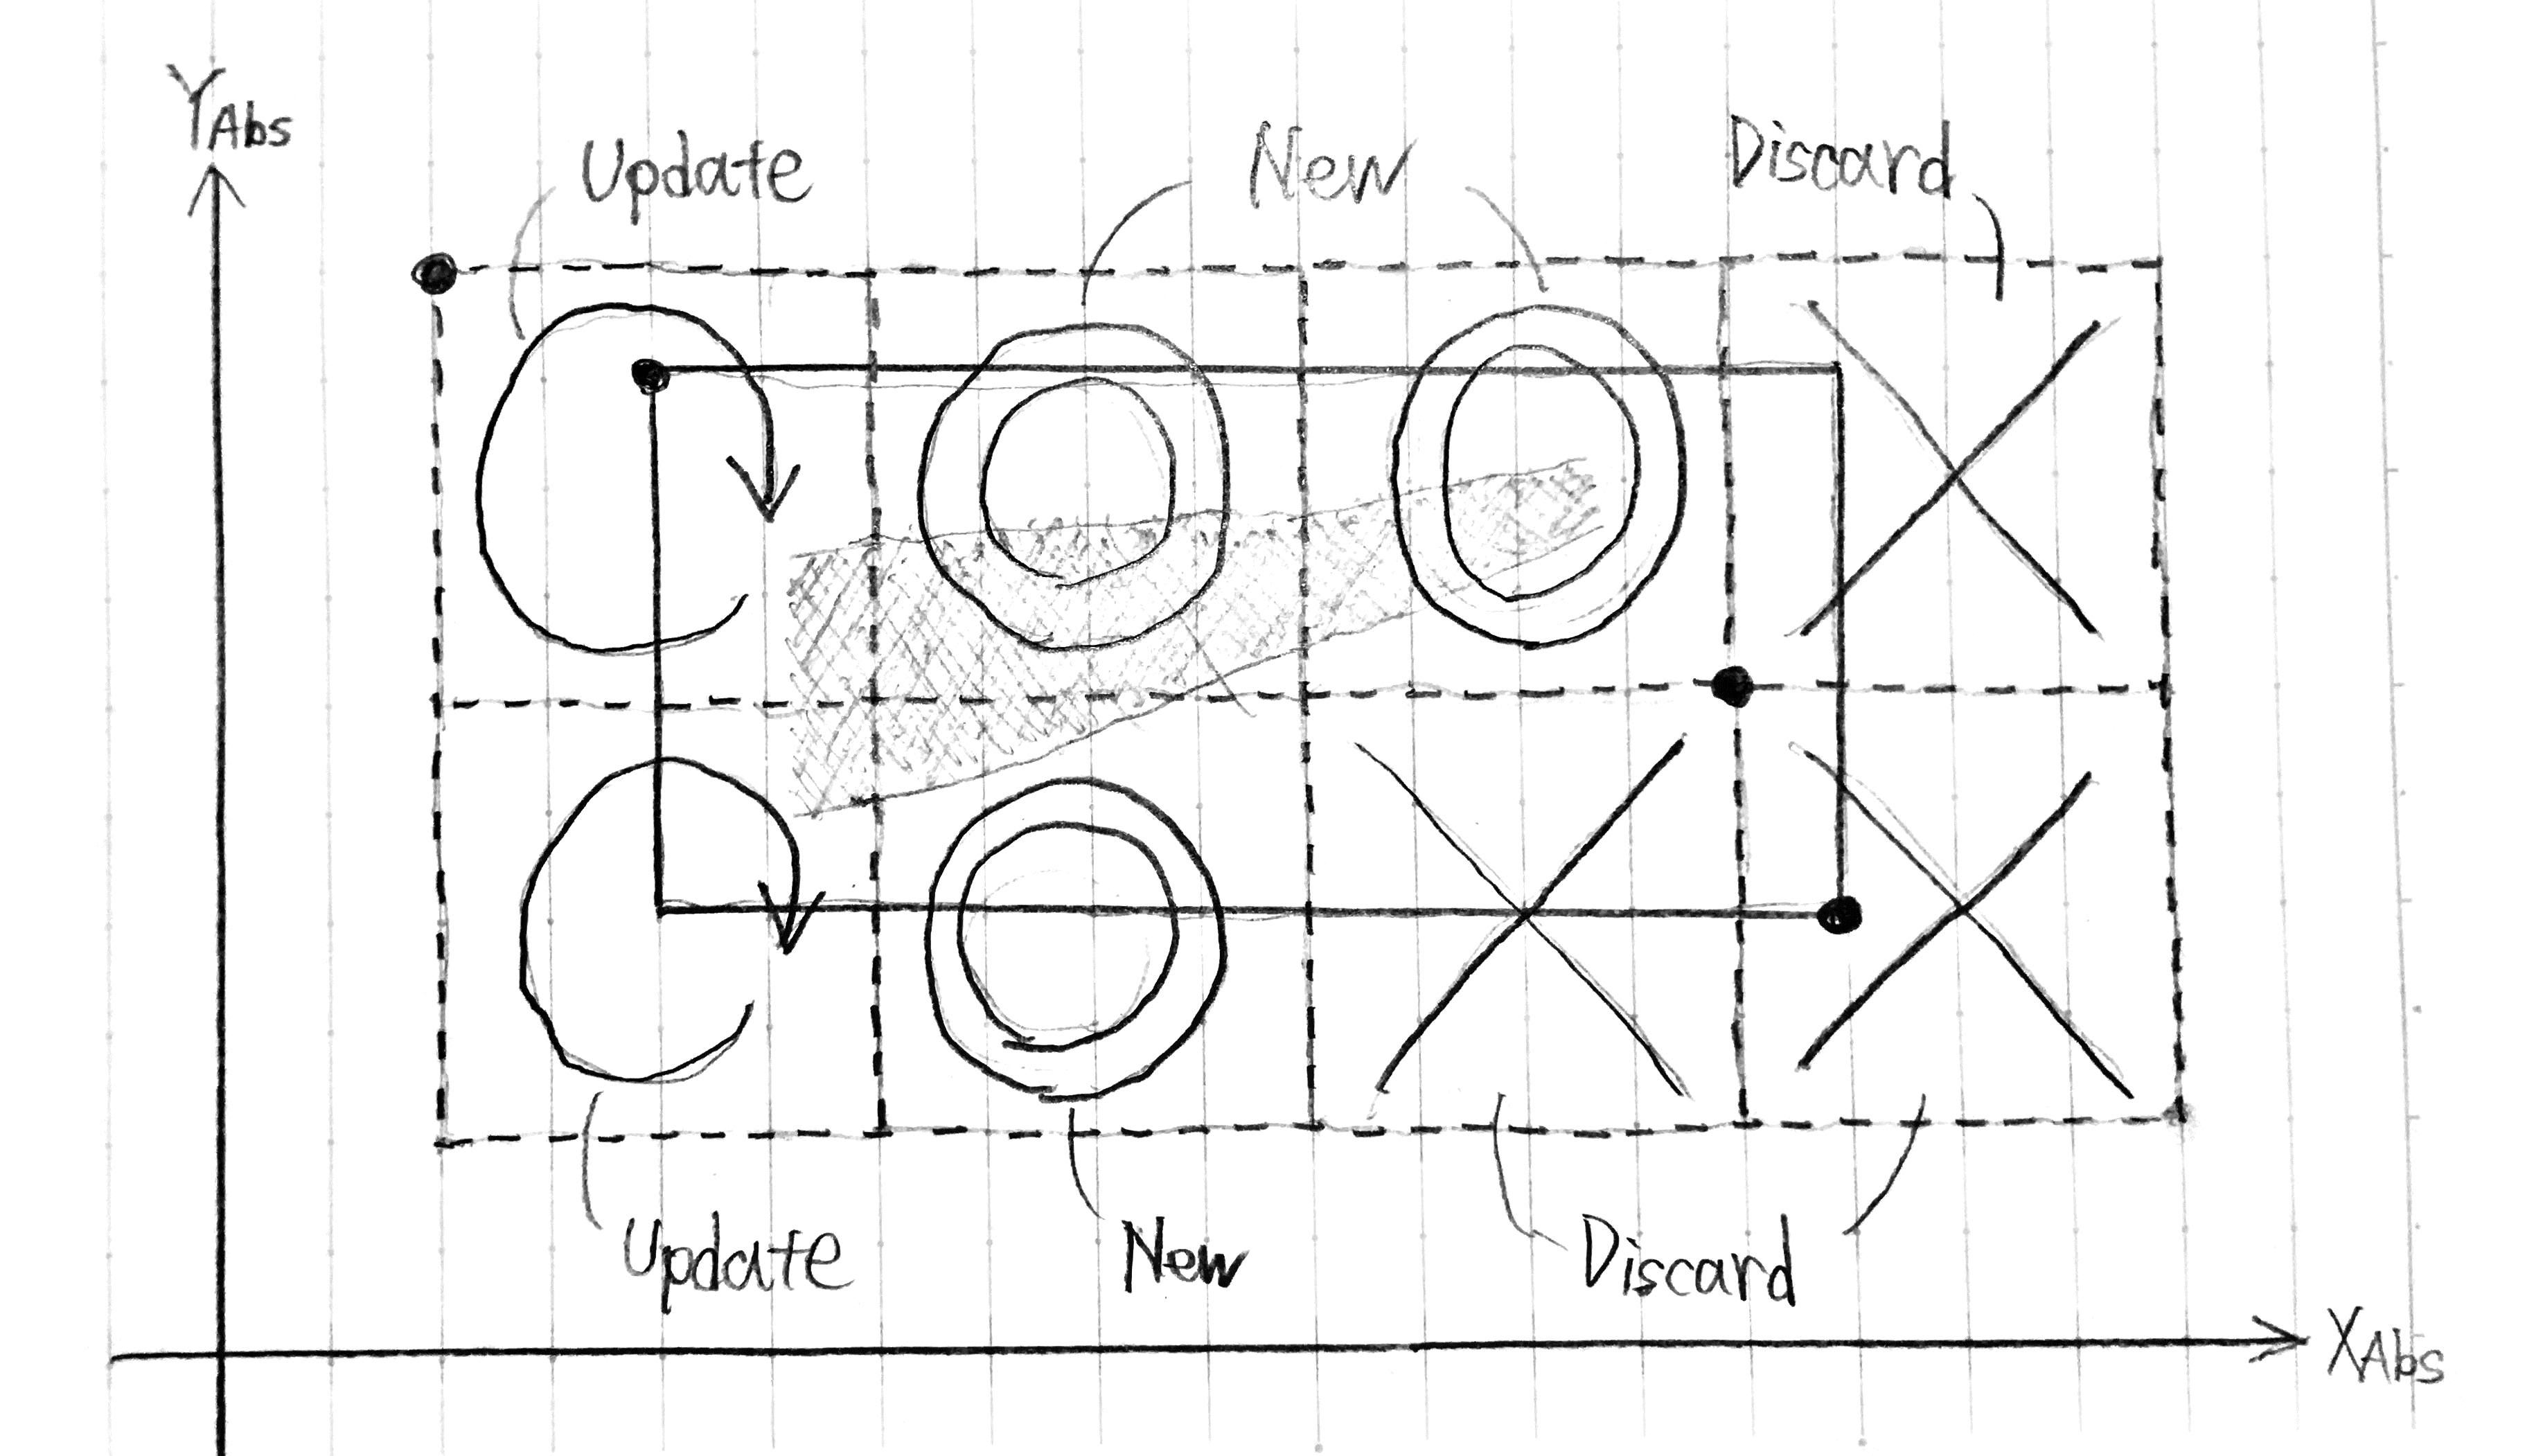 YAbs
Update
New
Discard
Update
New
Discard
XAbs